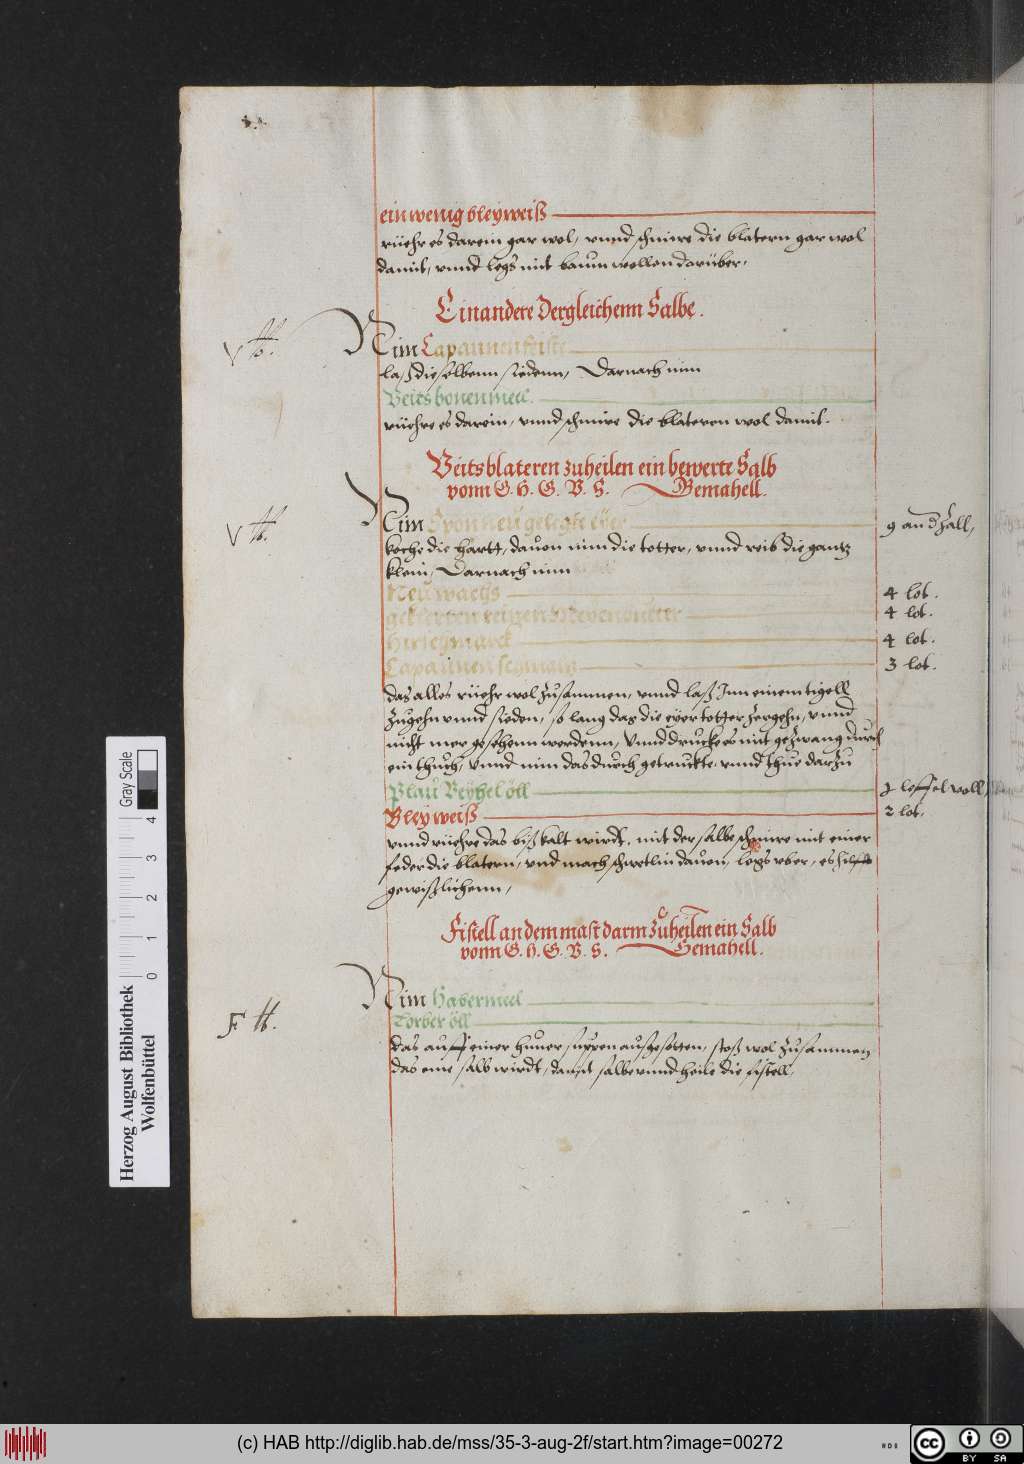 ein wenig bleyweiß
rüehr es darein gar wol, vnnd schmire die blatern gar wol
damit, vnnd legs mit baumwollen darüber,
Ein andere Dergleichenn Salbe.
Nim Capaunen feiste
laß die selbenn siedenn, Darnach nim
Veitsbonen meel.
rüehre es darein, vnnd schmire die blateren wol damit.
Veitsblateren zuheilen ein bewerte Salb
vonn G. H. G. V. S. Gemahell.
Nim neu gelegte eyer
9 an d Zall,
koche die hartt, dauon nim die totter, vnnd reib die gantz
klein, Darnach nim
Neu wachs
4 lot.
4 lot.
Hirschmarck
4 lot.
Capaunen schmaltz
3 lot.
das alles rüehr wol zusammen, vnnd laß Inn einem tigell
zugehn vnnd sieden, so lang das die eyer totter zergehn, vnnd
nicht mer gesehenn werdenn, Vnnd drucke es mit gezwang durch
ein thuch, Vnnd nim das durch getruckte, vnnd thue darzu
Plau Veyhel öll
2 leffel voll,
Bleyweiß
2 lot.
vnnd rüehre das biß kalt wirdt, mit der salbe schmire mit einer
feder die blatern, vnd mach dauon, legs vber, es hilfft
gewißlichenn,
Fistell an dem mast darm zuheilen ein Salb
vonn G. H. G. V. S. Gemahell.
Nim Habermeel
öll
das auff einer huner suppen außgesotten, stoß wol zusammen
das eine salb wirdt, damit salbe vnnd heile die fistell.
V
V
F
Herzog August Bibliothek
Wolfenbüttel
0 1 2 3 4
Gray Scale
(c) HAB http://diglib.hab.de/mss/35-3-aug-2f/start.htm?image=00272
cc BY SA